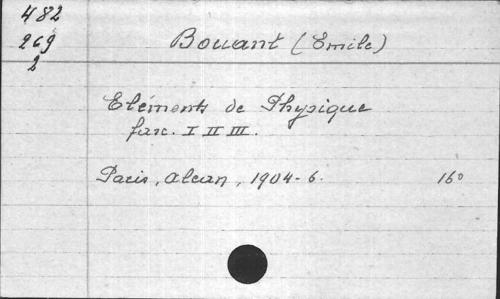 482
269
2
Bouant (Emile)
Eléments de Physique
fasc. I II III.
Paris, Alcan, 1904-6.
16°